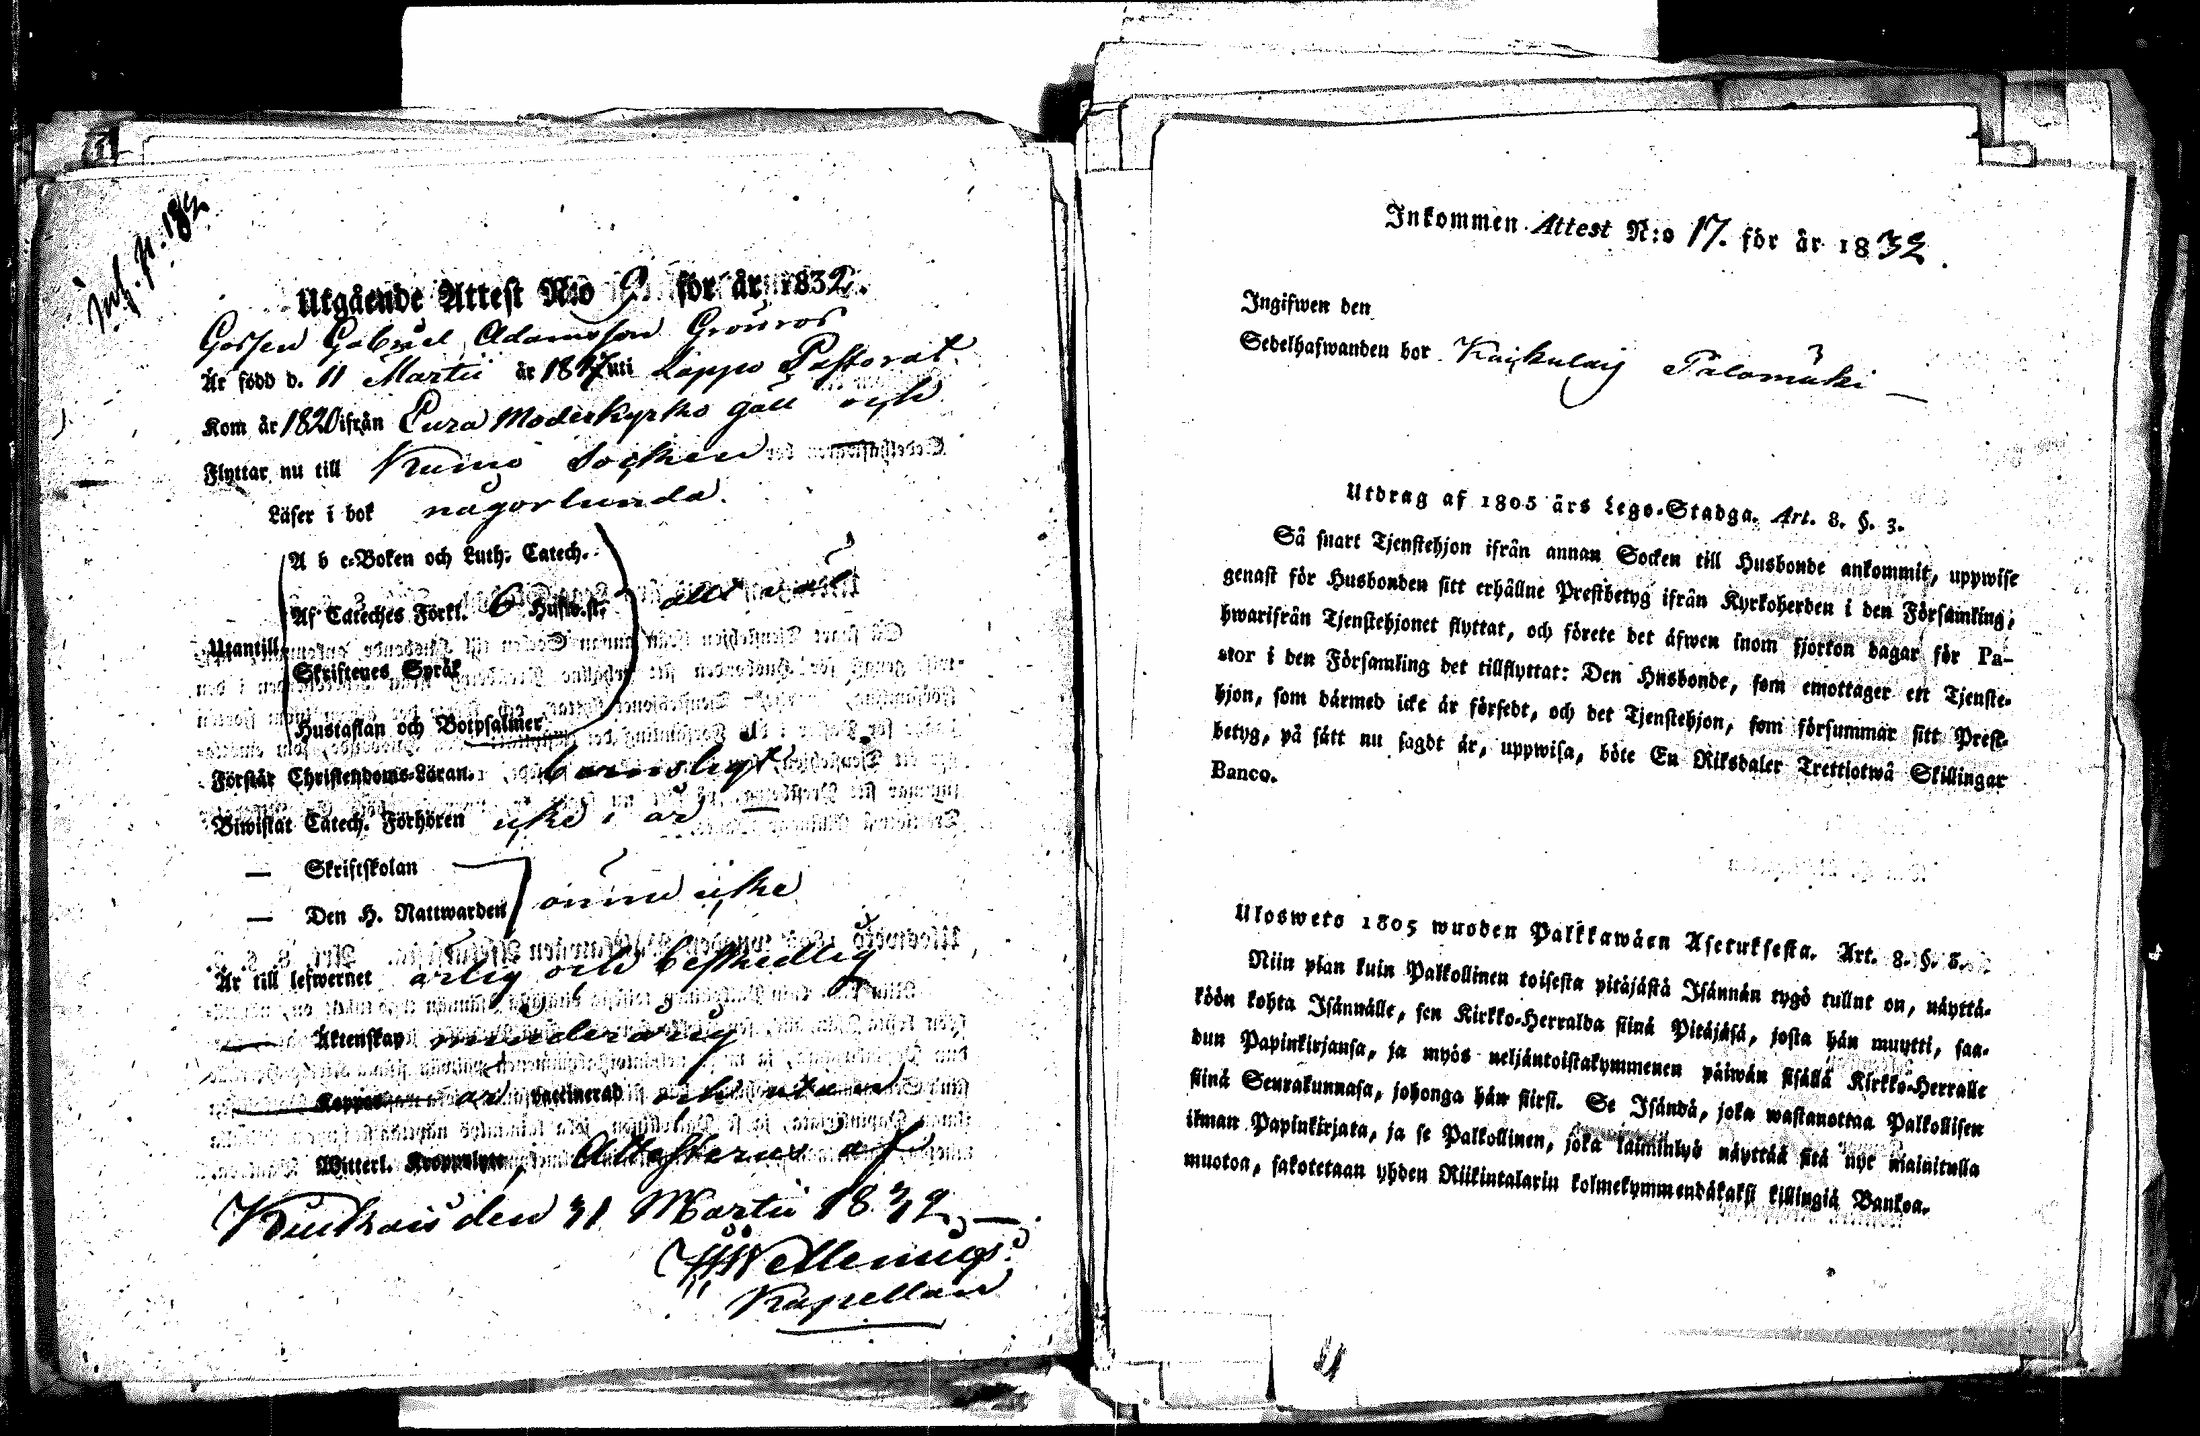 Inf. p. 182
Utgående Attest N:o 9 för år 1832.
Gossen Gabriel Adamsson Grönros
Är född d. 11 Martii år 1817 uti Lappo Pastorat
Kom år 1820 ifrån Eura Moderkyrko gäll och
Flyttar nu till Kumo Socken
Läser i bok någorlunda.
A b c-Boken och Luth. Catech.
Af Cateches Förkl. 6 Hufw.st. allt väl
Utantill
Skriftenes Språk
Hustaflan och Botpsalmer
Förstår Christendoms-Läran. barnsligt
Biwistat Catech. Förhören icke i år —
— Skriftskolan
— Den H. Nattwarden ännu icke
Är till lefwernet ärlig och beskedlig
— Äktenskap minderårig
Koppor är vaccinerad och utan
Witterl. Kroppslyte, Attesteras af
Kiukais den 31 Martii 1832. —
Kapellan
Inkommen Attest N:o 17. för år 1832.
Ingifwen den
Sedelhafwanden bor Kaikulaiş Palomäki —
Utdrag af 1805 års Lego-Stadga. Art. 8. §. 3.
Så snart Tjenstehjon ifrån annan Socken till Husbonde ankommit, uppwise
genast för Husbonden sitt erhållne Prestbetyg ifrån Kyrkoherden i den Församling,
hwarifrån Tjenstehjonet flyttat, och förete det äfwen inom fjorton dagar för Pa-
stor i den Församling det tillflyttat: Den Husbonde, som emottager ett Tjenste-
hjon, som därmed icke är försedt, och det Tjenstehjon, som försummar sitt Prest-
betyg, på sätt nu sagdt är, uppwisa, böte En Riksdaler Trettiotwå Skillingar
Banco.
Ulosweto 1805 wuoden Palkkawäen Asetuksesta. Art. 8. §. 3.
Niin pian kuin Palkollinen toisesta pitäjästä Isännän tygö tullut on, näyttä-
köön kohta Isännälle, sen Kirkko-Herralda siinä Pitäjäsä, josta hän muutti, saa-
dun Papinkirjansa, ja myös neljäntoistakymmenen päiwän sisällä Kirkko-Herralle
siinä Seurakunnasa, johonga hän siirsi. Se Isändä, joka wastanottaa Palkollisen
ilman Papinkirjata, ja se Palkollinen, joka laiminlyö näyttää sitä nyt mainitulla
muotoa, sakotetaan yhden Riikintalarin kolmekymmendäkaksi killingiä Bankoa.